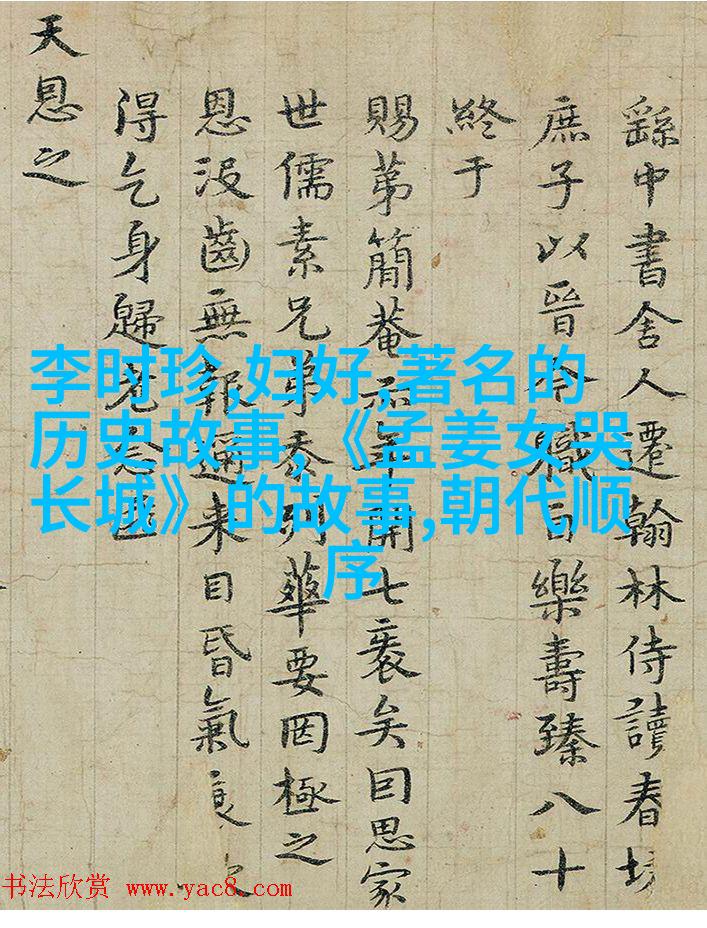 繇中書舍人遷翰林侍讀春坊
庶子以晉今職樂壽臻八十
終于
賜第簡菴年開七袠矣囙思家
世儒素兄弟忝列華要罔極之
恩没齒無報邇来目昏氣
得乞身歸老
天恩之
李时珍,妇好,著名的
历史故事,《孟姜女哭
长城》的故事,朝代顺
序
书法欣赏 www.yac8.com